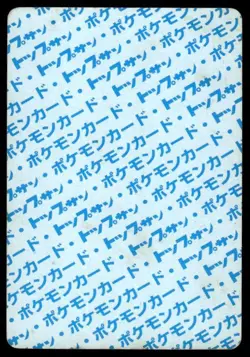 ポケモンカード・
トップサン・ポケモンカード
ポケモンカード・トップサン・
トップサン・ポケモンカード・
ポケモンカード・トップサン・
トップサン・ポケモンカード・
ポケモンカード・トップサン・
トップサン・ポケモンカード・
ポケモンカード・トップサン・
トップサン・ポケモンカード・
ポケモンカード・トップサン
トップサン・ポケモンカード
ポケモンカード